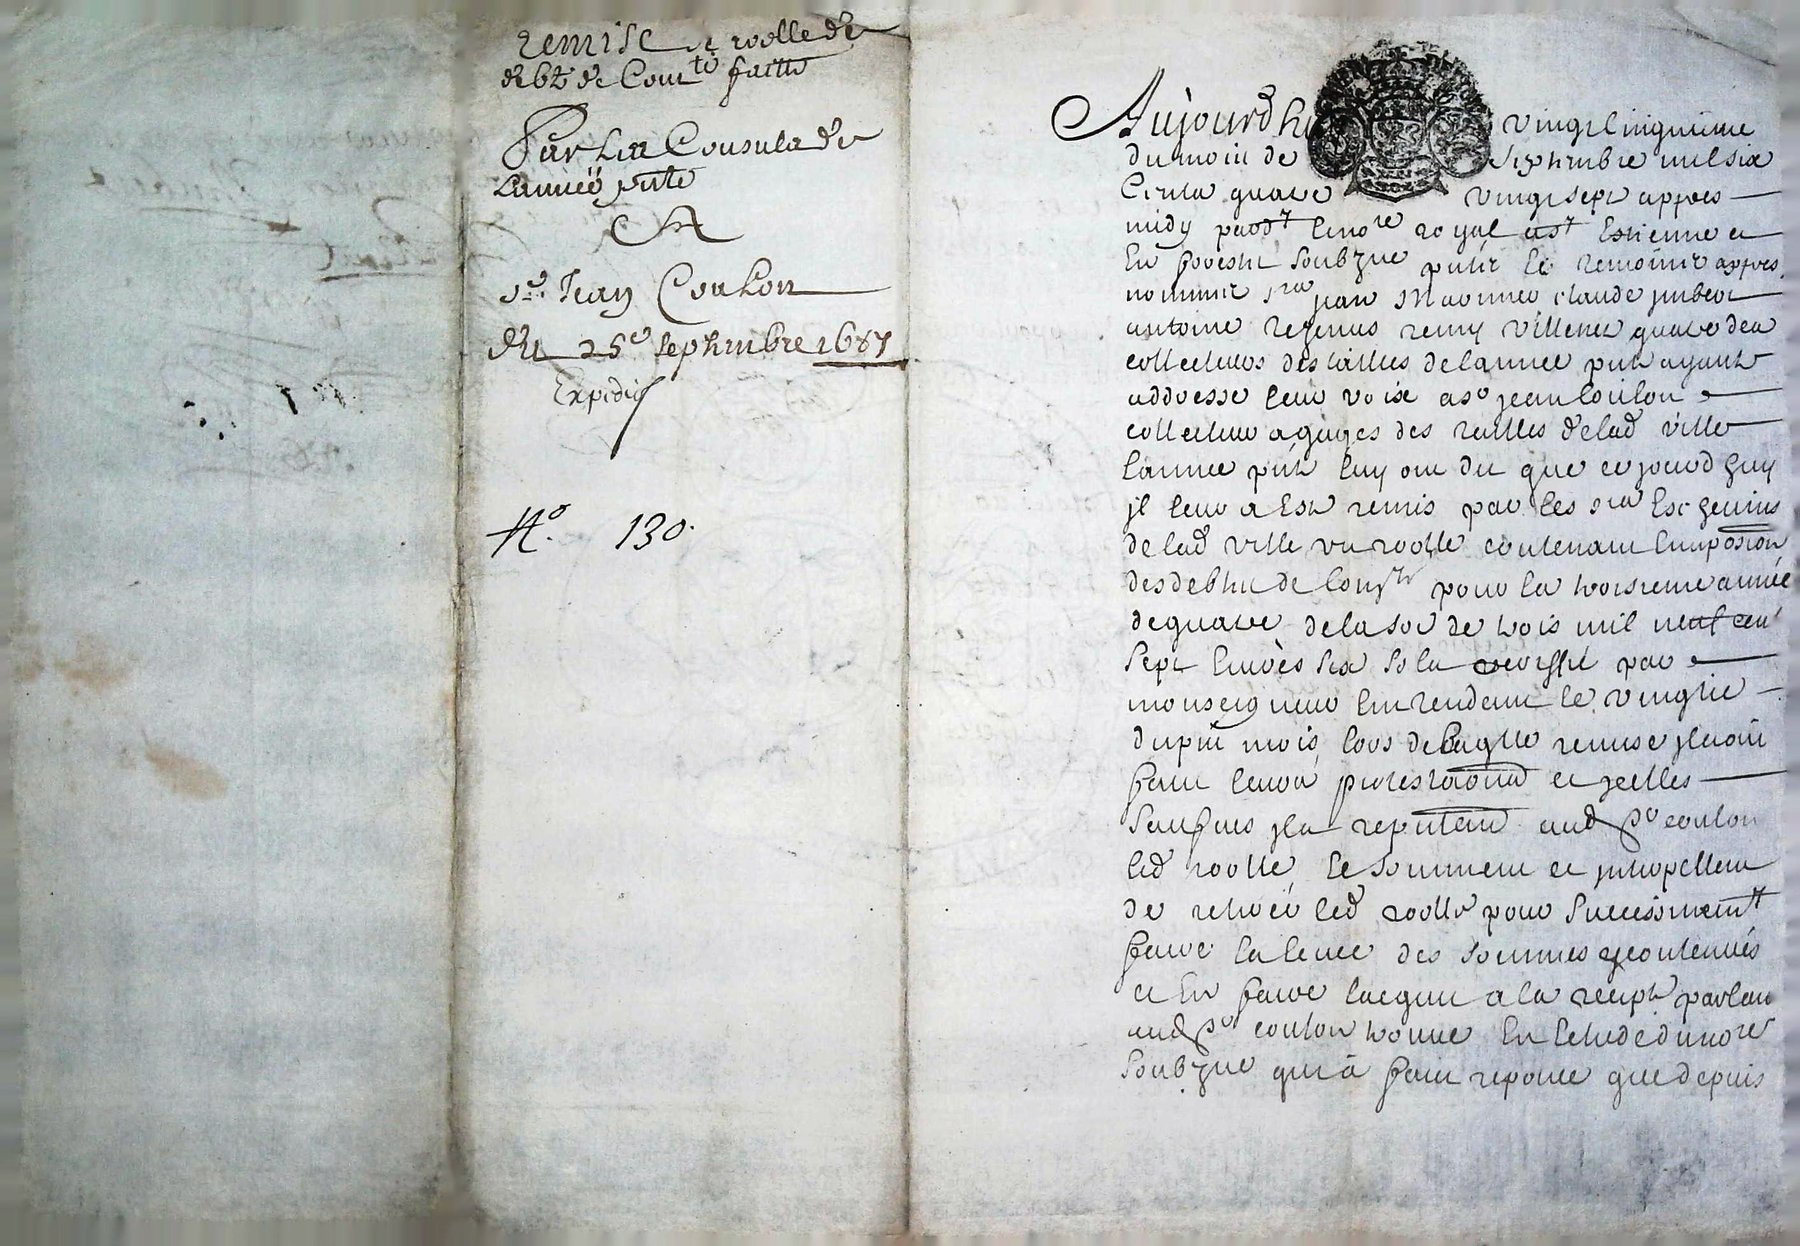 remise de roolle de
debtz de Comte faitte
Par les Consulz de
l'année pnte
A
sr. Jean Coulon
du 25e septembre 1687
Expedié
No. 130.
Aujourdhuy vingt cinquieme
du mois de septembre mil six
cents quatre vingt sept appres
midy pardt le nore royal
En forestz soubzne
nommes srs jean claude jmbert
antoine remy quatre des
collecteurs des tailles de lannee pnte ayants
addresse leur voix a sr jean Coulon
collecteur a gages des tailles de lad ville
lannee pnte luy ont dit que ce jourdhuy
jl leur a este remis par les srs Eschevins
de lad ville un roolle contenant limposion
des debtes de Comte pour la troisieme année
de quatre de la so de trois mil neuf cent
sept livres six sols par
monseigneur lintendant le vingtie
du pnt mois lors de laqlle remise jls ont
fait leurs protestaons et jcelles
aud sr coulon
led roolle le somment et jnterpellent
de retirer led roolle pour
faire la levee des sommes y contenues
et En faire lacquit a la parlant
aud sr coulon trouve En lestude du nore
soubzne qui a fait reponce que depuis